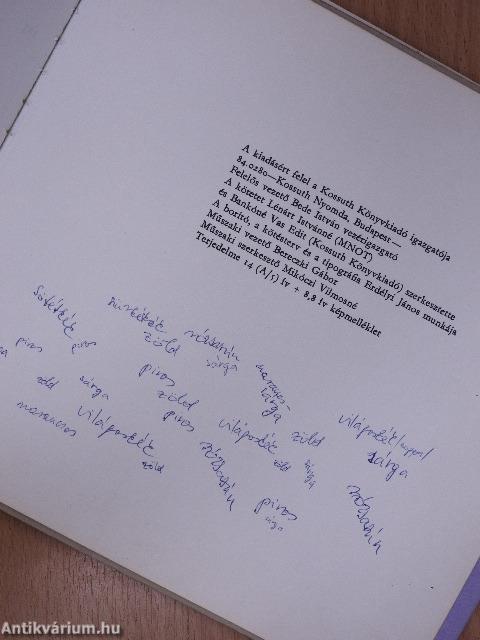 A kiadásért felel a Kossuth Könyvkiadó igazgatója
84.0280—Kossuth Nyomda, Budapest—
Felelős vezető Bede István vezérigazgató
A kötetet Lénárt Istvánné (MNOT)
és Bankóné Vas Edit (Kossuth Könyvkiadó) szerkesztette
A borító, a kötésterv és a tipográfia Erdélyi János munkája
Műszaki vezető Bereczki Gábor
Műszaki szerkesztő Mikóczi Vilmosné
Terjedelme 14 (A/5) ív + 8,8 ív képmelléklet
sötétkék piros szürkéskék zöld rózsaszín sárga sárga világoskék
piros piros zöld világoskék zöld sárga
zöld sárga piros zöld sárga rózsaszín
narancs világoskék zöld rózsaszín piros sárga
Antikvárium.hu